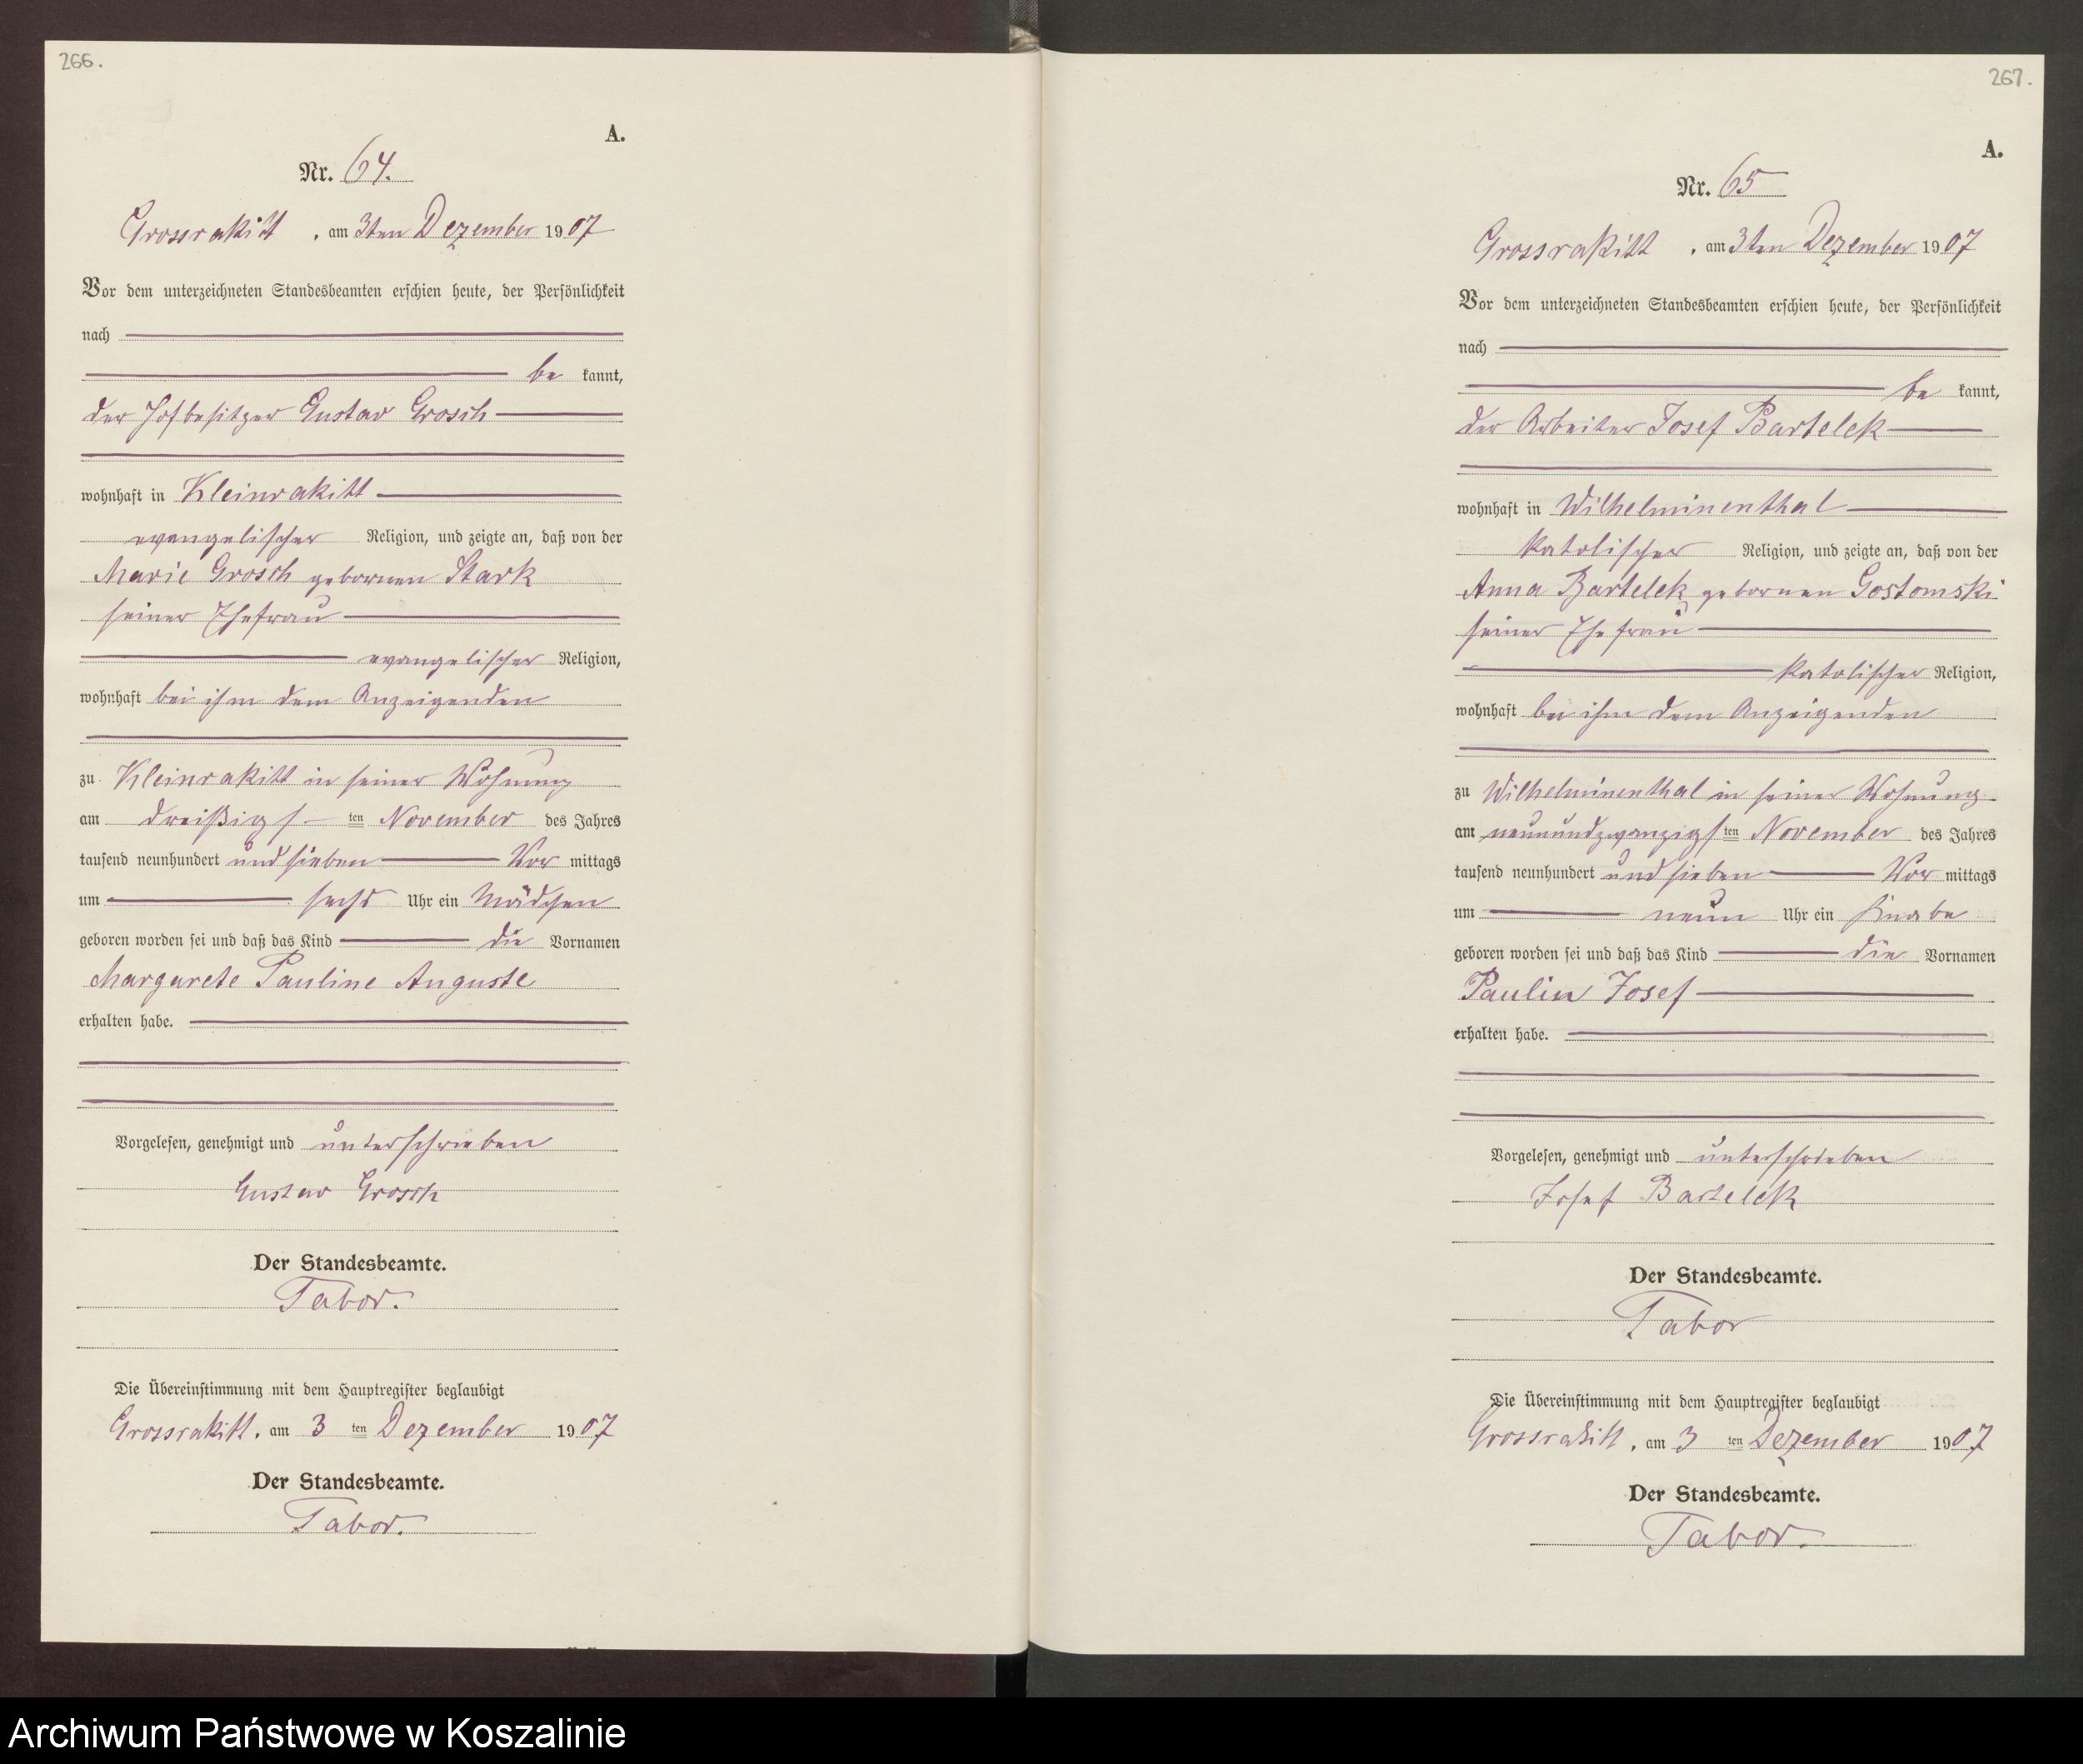 266.
A.
Nr. 64.
Grossrakitt, am 3ten Dezember 1907
Vor dem unterzeichneten Standesbeamten erschien heute, der Persönlichkeit
nach
be kannt,
der Hofbesitzer Gustav Grosch
wohnhaft in Kleinrakitt
evangelischer Religion, und zeigte an, daß von der
Marie Grosch gebornen Stark
seiner Ehefrau
evangelischer Religion,
wohnhaft bei ihm dem Anzeigenden
zu Kleinrakitt in seiner Wohnung
am dreißigsten November des Jahres
tausend neunhundert und sieben Vor mittags
um sechs Uhr ein Mädchen
geboren worden sei und daß das Kind die Vornamen
Margarete Pauline Auguste
erhalten habe.
Vorgelesen, genehmigt und unterschrieben
Gustav Grosch
Der Standesbeamte.
Tabor.
Die Übereinstimmung mit dem Hauptregister beglaubigt
Grossrakitt, am 3 ten Dezember 1907
Der Standesbeamte.
Tabor.
267.
A.
Nr. 65
Grossrakitt, am 3ten Dezember 1907
Vor dem unterzeichneten Standesbeamten erschien heute, der Persönlichkeit
nach
be kannt,
der Arbeiter Josef Bartelek
wohnhaft in Wilhelminenthal
katolischer Religion, und zeigte an, daß von der
Anna Bartelek gebornen Gostomski
seiner Ehefrau
katolischer Religion,
wohnhaft bei ihm dem Anzeigenden
zu Wilhelminenthal in seiner Wohnung
am neunundzwanzigsten November des Jahres
tausend neunhundert und sieben Vor mittags
um neun Uhr ein Knabe
geboren worden sei und daß das Kind die Vornamen
Paulin Josef
erhalten habe.
Vorgelesen, genehmigt und unterschrieben
Josef Bartelek
Der Standesbeamte.
Tabor
Die Übereinstimmung mit dem Hauptregister beglaubigt
Grossrakitt, am 3 ten Dezember 1907
Der Standesbeamte.
Tabor.
Archiwum Państwowe w Koszalinie